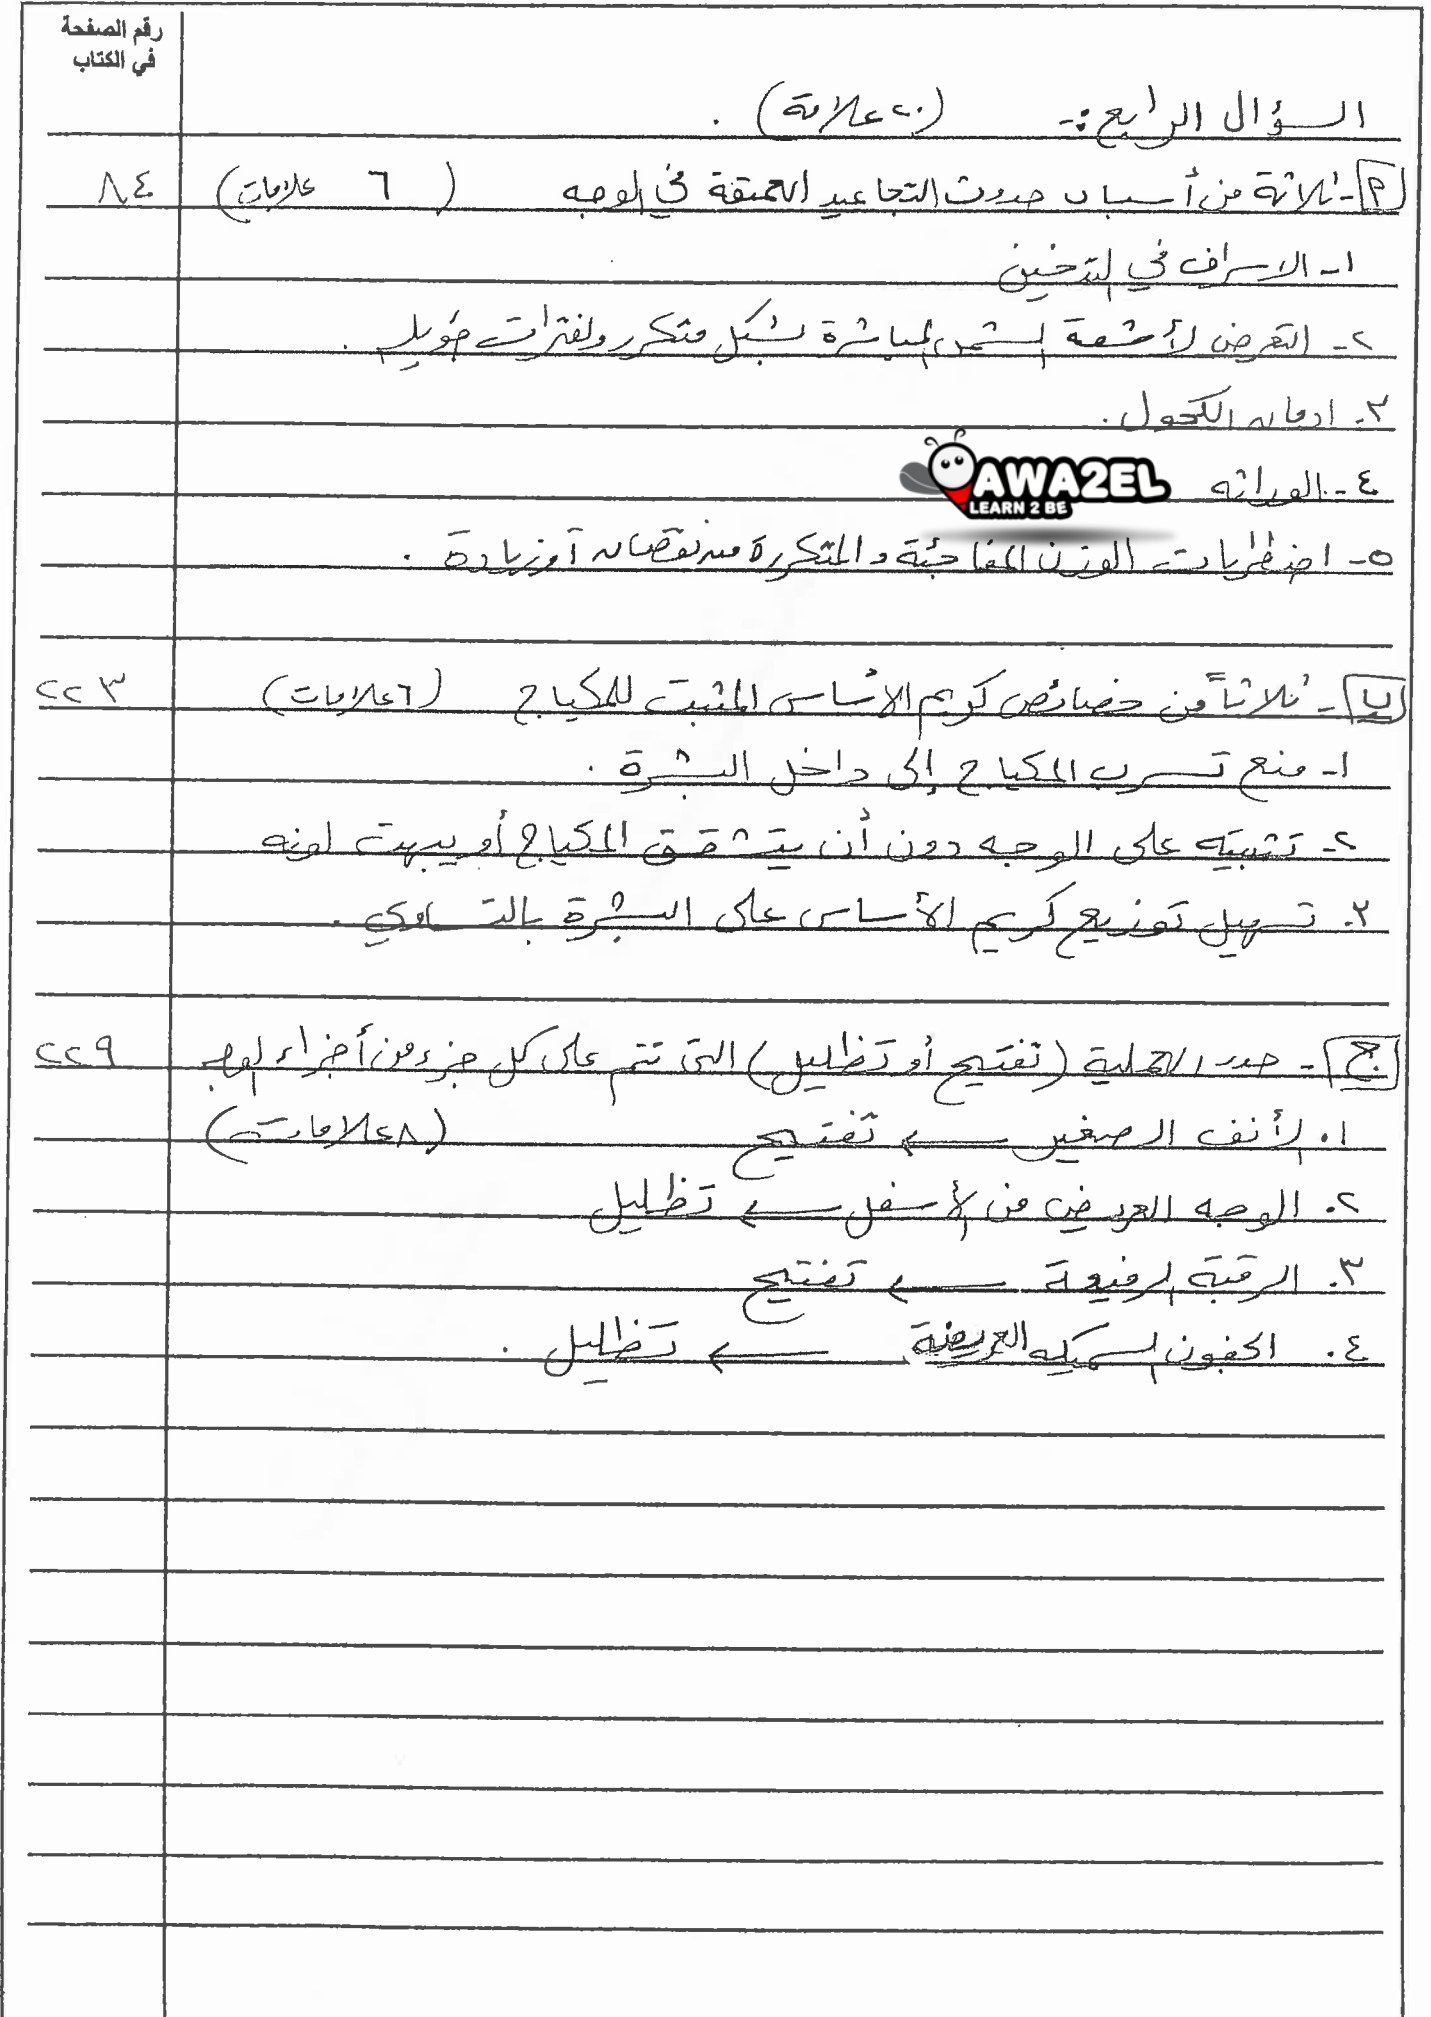 رقم الصفحة
في الكتاب
السؤال الرابع :- (٢٠ علامة) .
أ - ثلاثة من أسباب حدوث التجاعيد العميقة في الوجه (٦ علامات) ٨٤
١- الاسراف في التدخين
٢- التعرض لأشعة الشمس المباشرة بشكل متكرر ولفترات طويلة .
٣- ادمان الكحول .
٤- الوراثه
AWA2EL
LEARN 2 BE
٥- اضطرابات الوزن المفاجئة والمتكررة من نقصان أو زيادة .
ب - ثلاثاً من خصائص كريم الأساس المثبت للمكياج (٦ علامات) ٢٢٣
١- منع تسرب المكياج إلى داخل البشرة .
٢- تثبيته على الوجه دون أن يتشقق المكياج أو يبهت لونه
٣. تسهيل توزيع كريم الأساس على البشرة بالتساوي .
ج - حدد العملية (تفتيح أو تظليل) التي تتم على كل جزء من أجزاء الوجه ٢٢٩
١. الأنف الصغير ← تفتيح (٨ علامات)
٢. الوجه العريض من الأسفل ← تظليل
٣. الرقبة الرفيعة ← تفتيح
٤. الجفون السميكه العريضة ← تظليل .